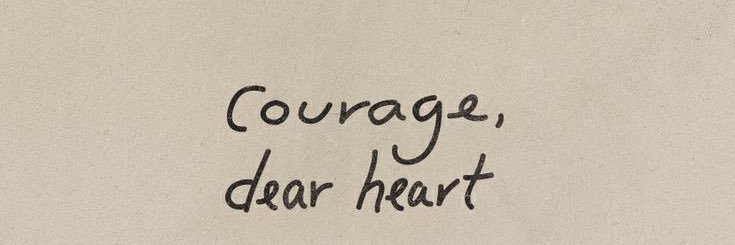 Courage,
dear heart